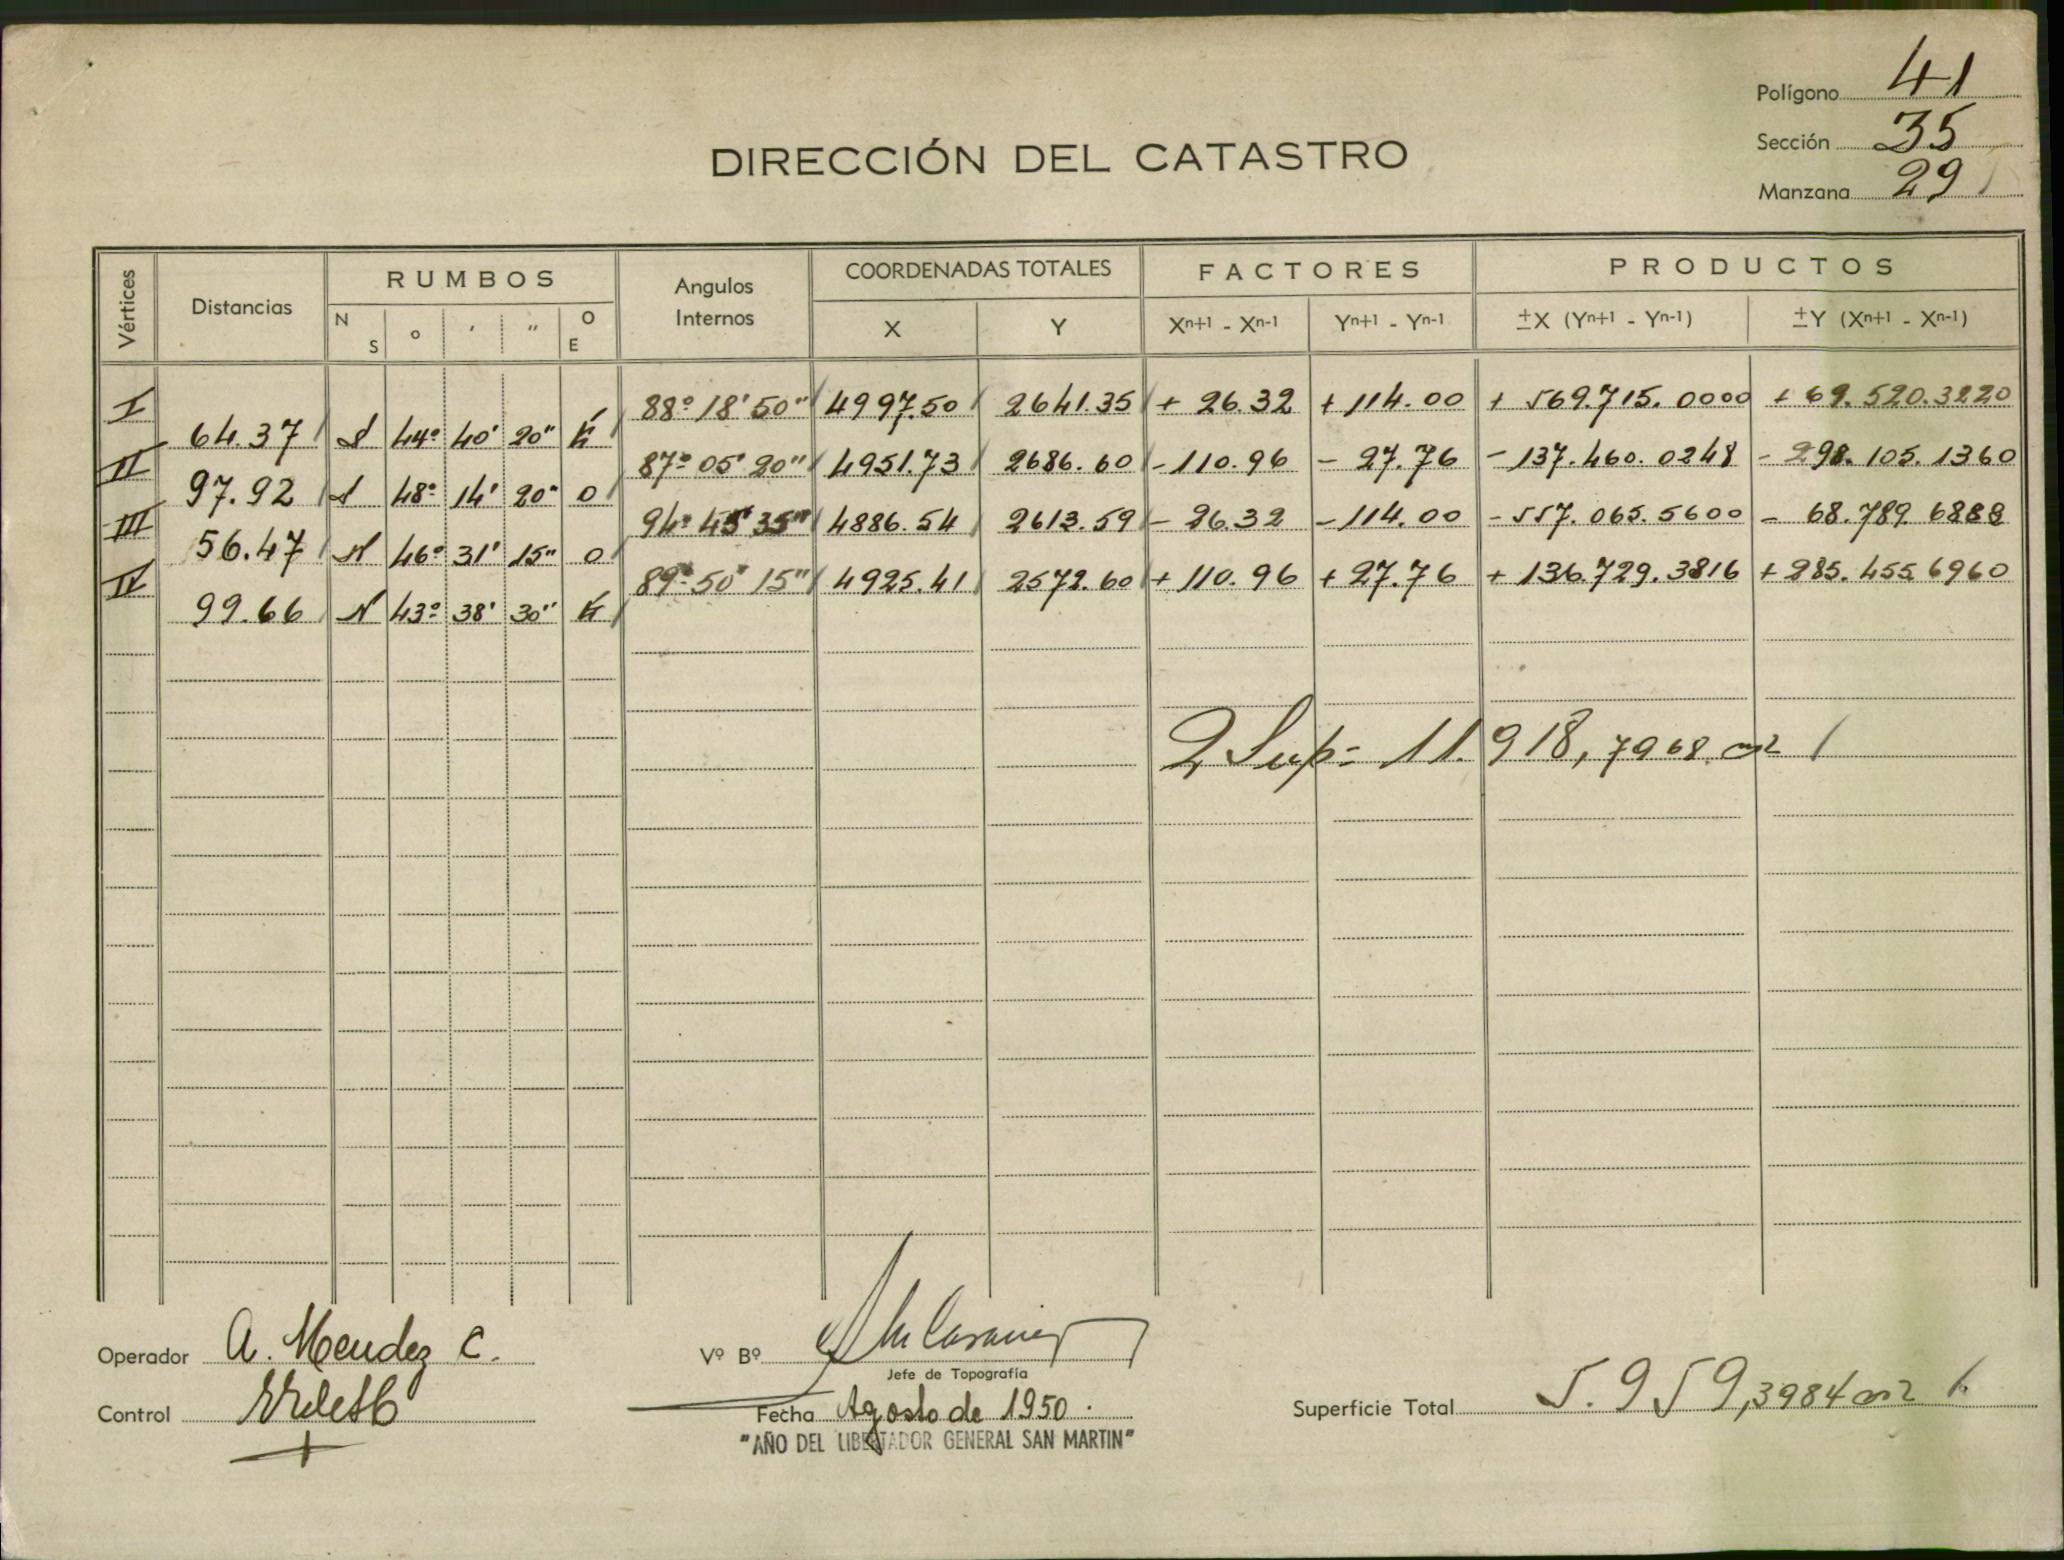 Polígono 41
Sección 35
Manzana 29
DIRECCIÓN DEL CATASTRO
Vértices Distancias RUMBOS Angulos Internos COORDENADAS TOTALES FACTORES PRODUCTOS
N S o ′ ″ O E X Y Xⁿ⁺¹ - Xⁿ⁻¹ Yⁿ⁺¹ - Yⁿ⁻¹ ±X (Yⁿ⁺¹ - Yⁿ⁻¹) ±Y (Xⁿ⁺¹ - Xⁿ⁻¹)
I 88º 18' 50" 4997.50 2641.35 + 26.32 + 114.00 + 569.715.0000 + 69.520.3220
64.37 S 44º 40' 20" E
II 87º 05' 20" 4951.73 2686.60 - 110.96 - 27.76 - 137.460.0248 - 298.105.1360
97.92 S 48º 14' 20" O
III 94º 45' 35" 4886.54 2613.59 - 26.32 - 114.00 - 557.065.5600 - 68.789.6888
56.47 N 46º 31' 15" O
IV 89º 50' 15" 4925.41 2572.60 + 110.96 + 27.76 + 136.729.3816 + 285.455.6960
99.66 N 43º 38' 30" E
2 Sup= 11.918,7968 m2
Operador A. Mendez C.
Vº Bº
Jefe de Topografía
Control
Fecha Agosto de 1950.
"AÑO DEL LIBERTADOR GENERAL SAN MARTIN"
Superficie Total 5.959,3984 m2